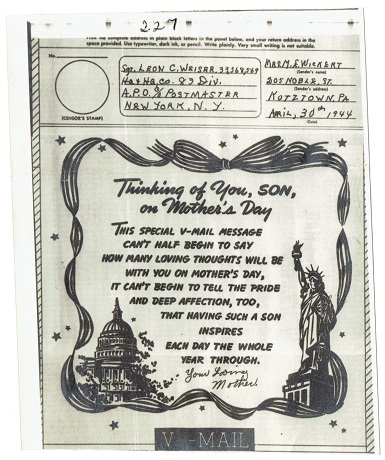 227
Print the complete address in plain block letters in the panel below, and your return address in the
space provided. Use typewriter, dark ink, or pencil. Write plainly. Very small writing is not suitable.
No.
(CENSOR'S STAMP)
SGT. LEON C. WEISER, 33,368,569
HQ & HQ. CO. 83 DIV.
A.P.O. % POSTMASTER
NEW YORK, N. Y.
MRS. M. E. WICKERT
(Sender's name)
205 NOBLE, ST.
(Sender's address)
KUTZTOWN, PA
APRIL, 30th, 1944
(Date)
Thinking of You, SON,
on Mother's Day
THIS SPECIAL V-MAIL MESSAGE
CAN'T HALF BEGIN TO SAY
HOW MANY LOVING THOUGHTS WILL BE
WITH YOU ON MOTHER'S DAY,
IT CAN'T BEGIN TO TELL THE PRIDE
AND DEEP AFFECTION, TOO,
THAT HAVING SUCH A SON
INSPIRES
EACH DAY THE WHOLE
YEAR THROUGH.
Your Loving
Mother
V - MAIL